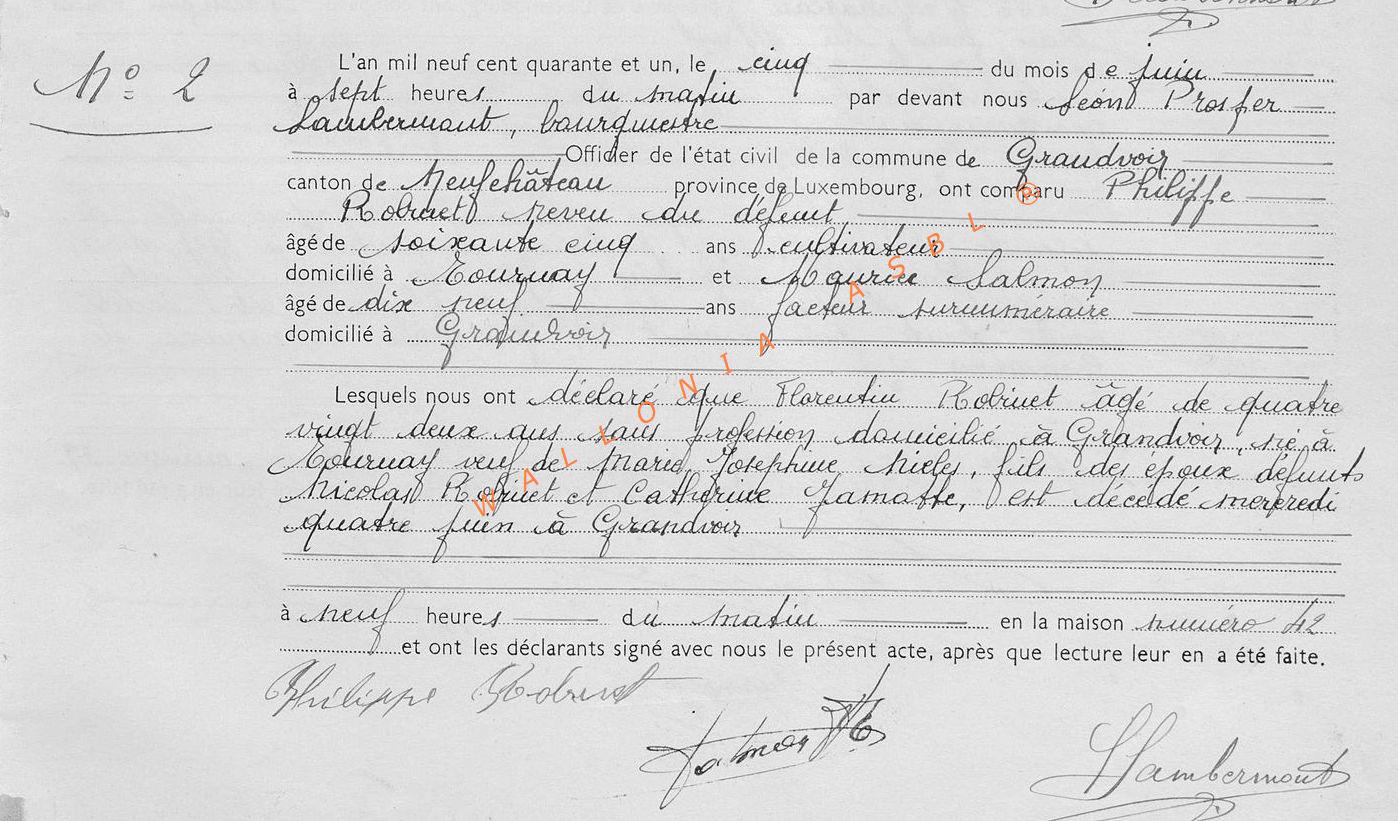 N° 2
L'an mil neuf cent quarante et un, le cinq du mois de juin
à sept heures du matin par devant nous Léon Prosper
Lambermont, bourgmestre
Officier de l'état civil de la commune de Grandvoir
canton de Neufchâteau province de Luxembourg, ont comparu Philippe
Robinet neveu du défunt
âgé de soixante cinq ans cultivateur
domicilié à Tournay et Maurice Salmon
âgé de dix neuf ans facteur surnuméraire
domicilié à Grandvoir
Lesquels nous ont déclaré que Florentin Robinet âgé de quatre
vingt deux ans sans profession domicilié à Grandvoir, né à
Tournay veuf de Marie Joséphine, fils des époux défunts
Nicolas Robinet et Catherine, est décédé mercredi
quatre juin à Grandvoir
à neuf heures du matin en la maison numéro 42
et ont les déclarants signé avec nous le présent acte, après que lecture leur en a été faite.
Philippe Robinet
Salmon
LLambermont
WALLONIA ASBL ®